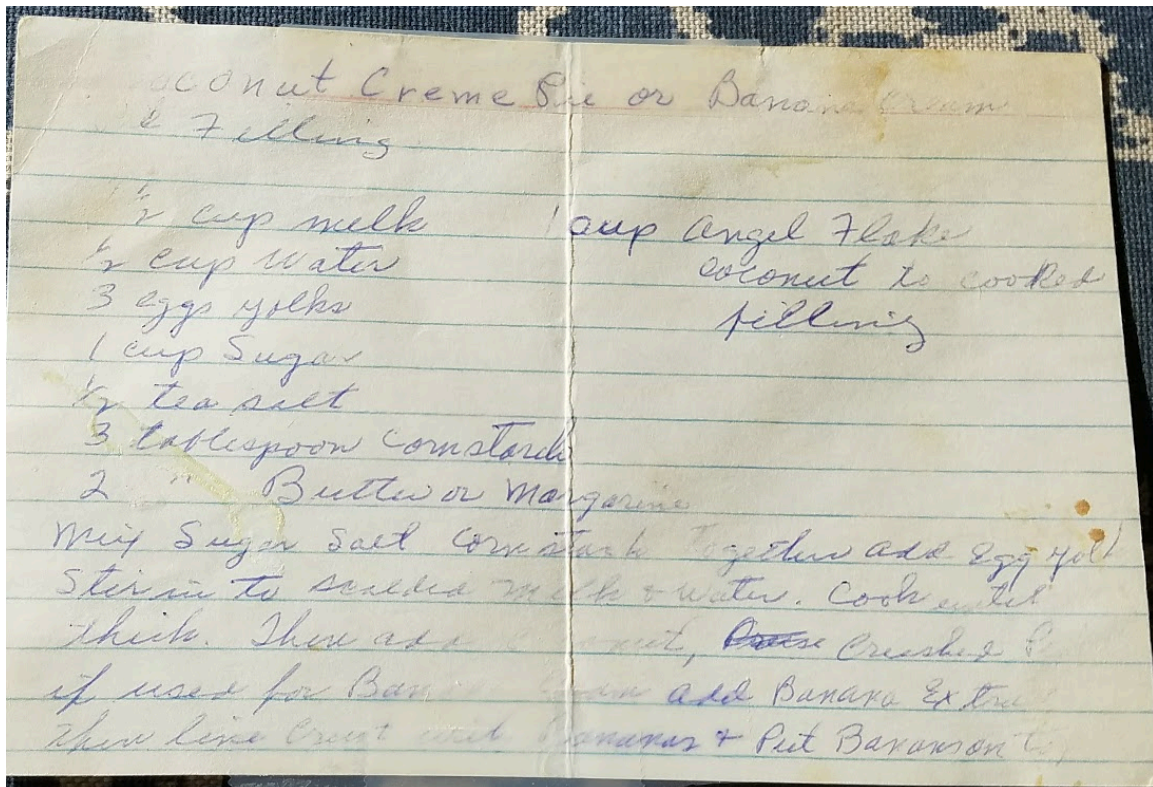 oconut Creme Pie or Banana Cream
& Filling
½ cup milk
½ cup Water
3 eggs yolks
1 cup Sugar
½ tea salt
3 tablespoon Cornstarch
2 " Butter or Margarine
1 cup Angel Flake
coconut to cooked
filling
Mix Sugar Salt Cornstarch Together add Egg yolk
Stir in to scalded Milk & Water. Cook until
thick. Then add , Crushed
if used for add Banana
Then line Crust with Bananas + Put Bananas on